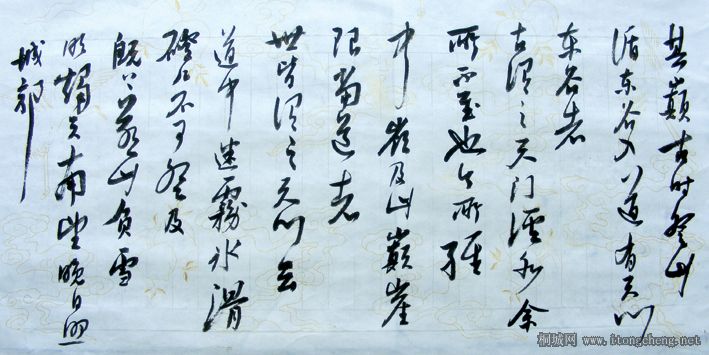 其巅古时登山
循东谷入道有天门
东谷者
古谓之天门溪水余
所不至也今所经
中岭及山巅崖
限当道者
世皆谓之天门云
道中迷霧冰滑
磴几不可登及
既上苍山负雪
明燭天南望晚日照
城郭
桐城网 www.itongcheng.net